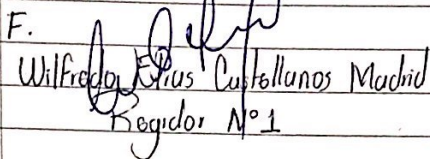 F.
Wilfredo Elius Castellanos Madrid
Regidor N° 1